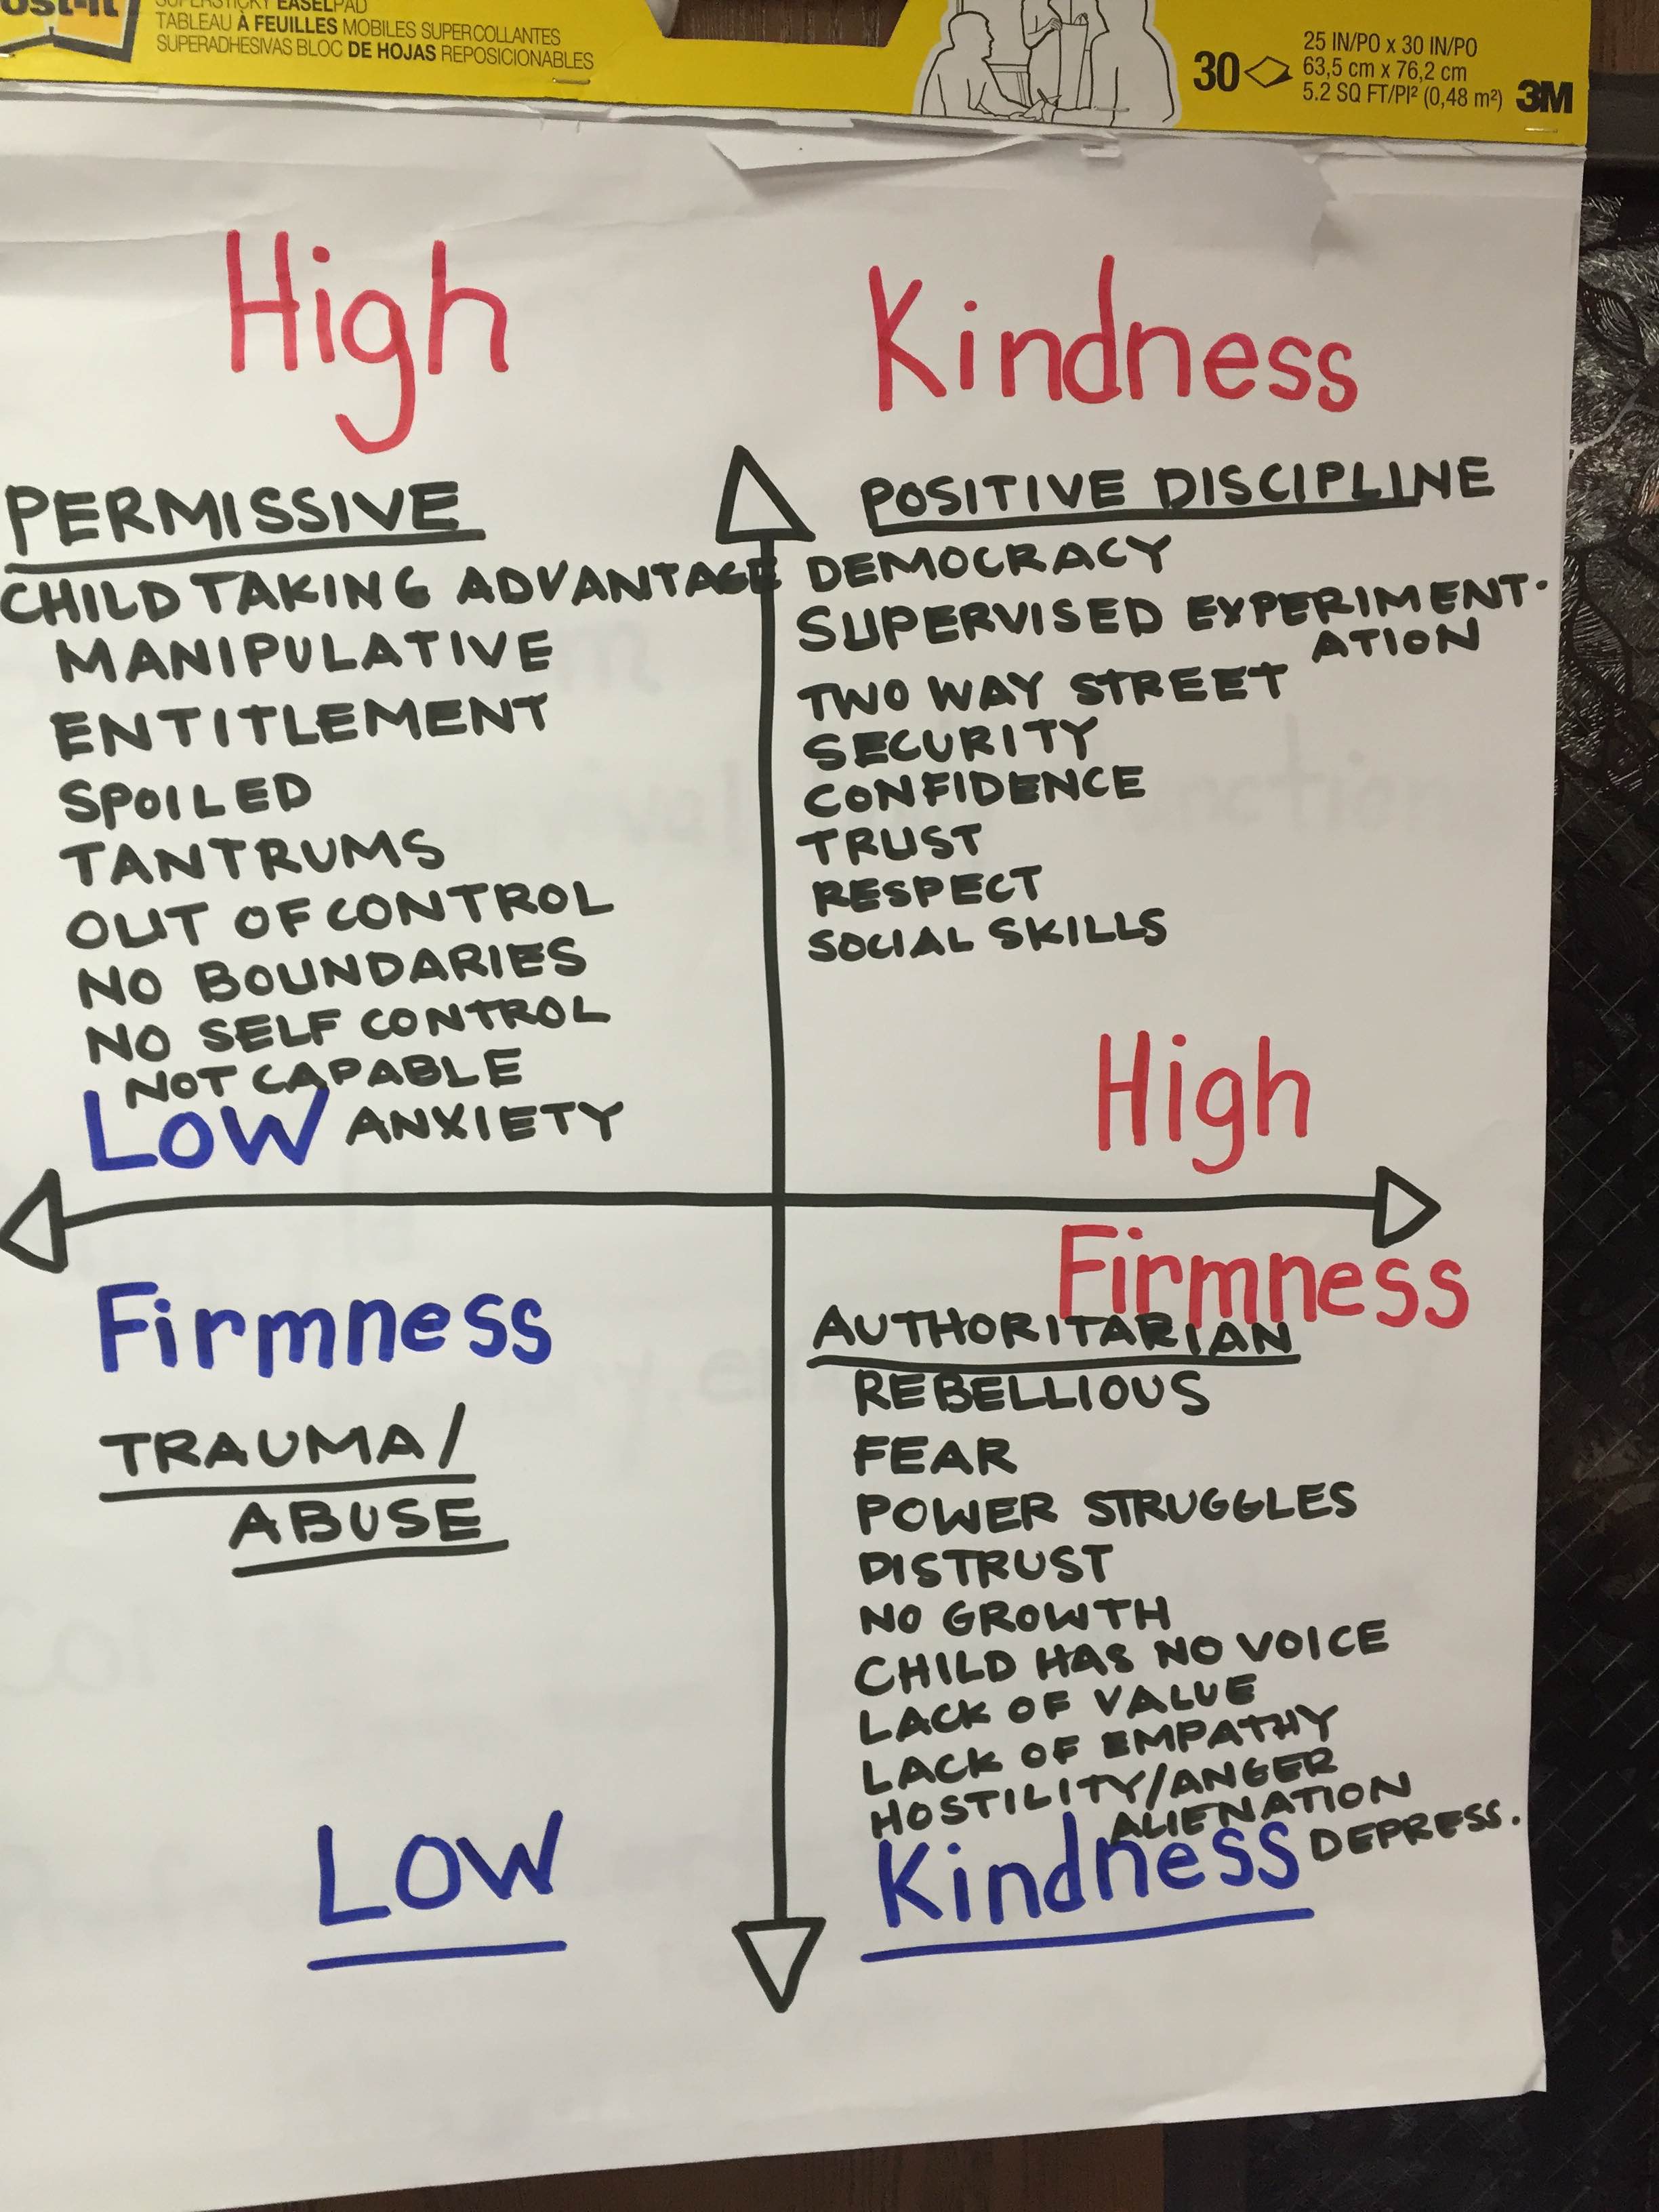 SUPERSTICKY EASELPAD
TABLEAU À FEUILLES MOBILES SUPERCOLLANTES
SUPERADHESIVAS BLOC DE HOJAS REPOSICIONABLES
30
25 IN/PO x 30 IN/PO
63,5 cm x 76,2 cm
5.2 SQ FT/PI² (0,48 m²)
3M
High Kindness
PERMISSIVE
CHILD TAKING ADVANTAGE
MANIPULATIVE
ENTITLEMENT
SPOILED
TANTRUMS
OUT OF CONTROL
NO BOUNDARIES
NO SELF CONTROL
NOT CAPABLE
ANXIETY
POSITIVE DISCIPLINE
DEMOCRACY
SUPERVISED EXPERIMENT·
ATION
TWO WAY STREET
SECURITY
CONFIDENCE
TRUST
RESPECT
SOCIAL SKILLS
Low
Firmness
High
Firmness
TRAUMA/
ABUSE
AUTHORITARIAN
REBELLIOUS
FEAR
POWER STRUGGLES
DISTRUST
NO GROWTH
CHILD HAS NO VOICE
LACK OF VALUE
LACK OF EMPATHY
HOSTILITY/ANGER
ALIENATION
DEPRESS.
Low Kindness